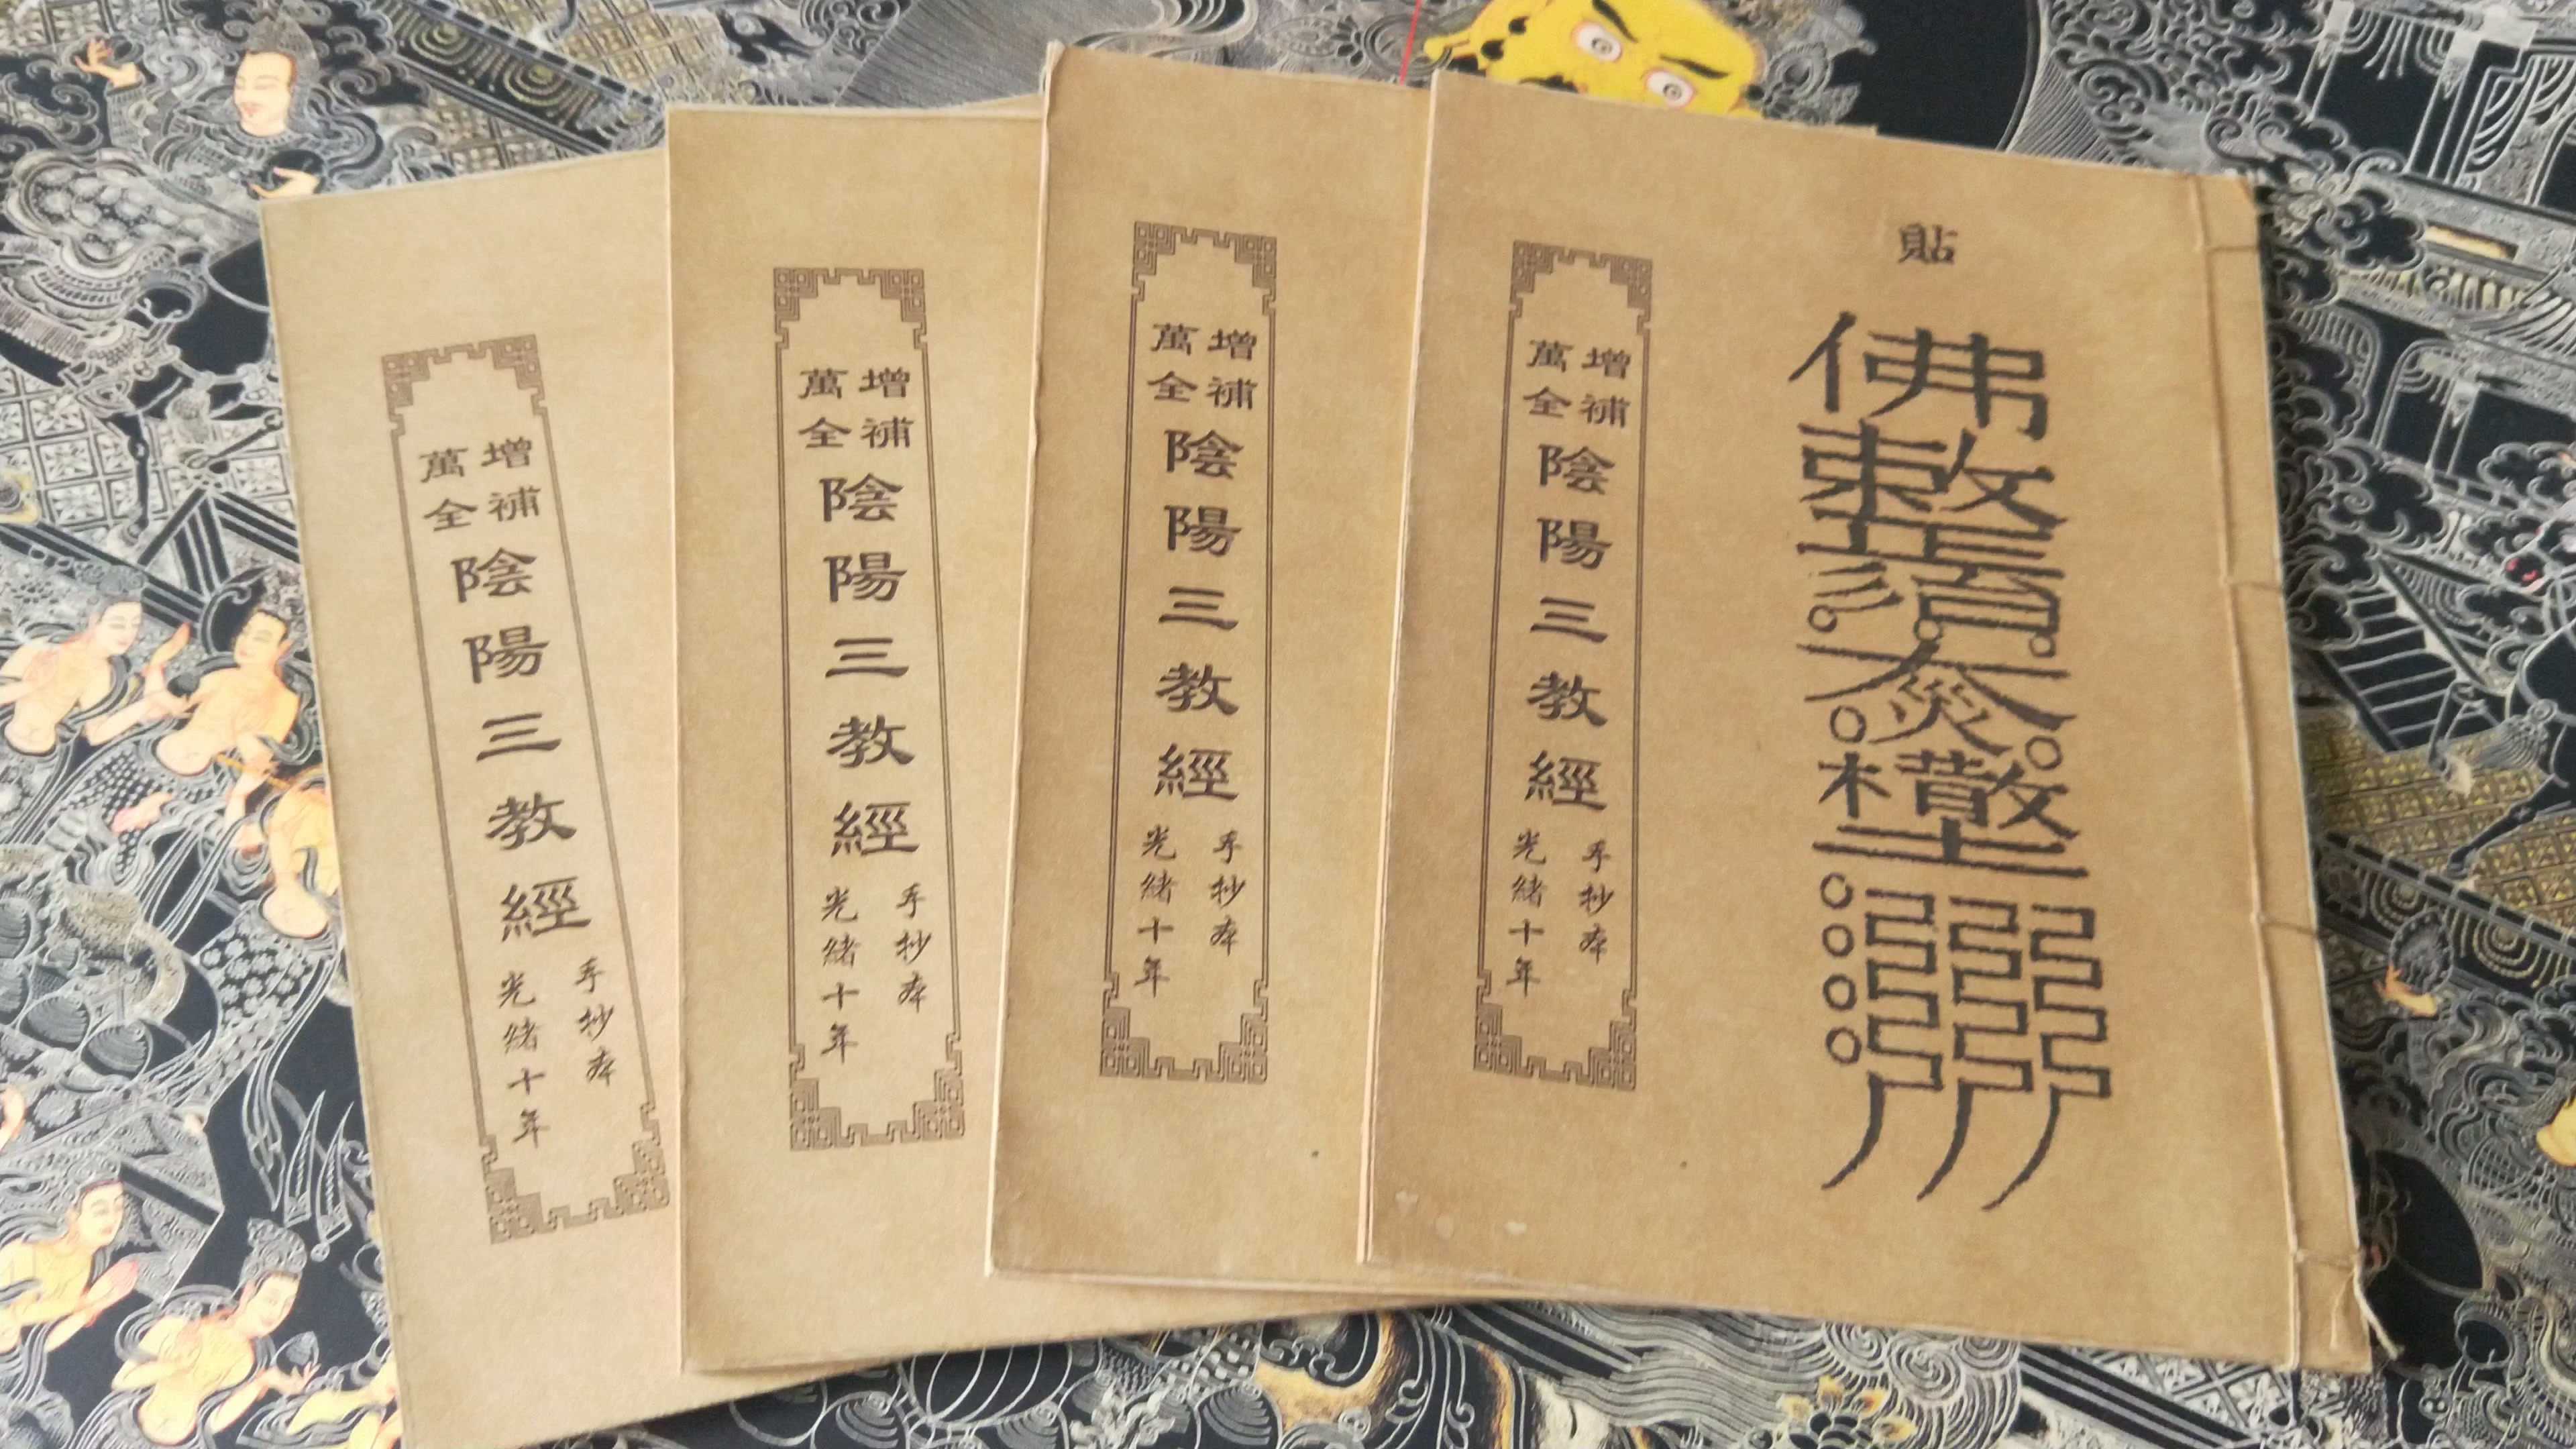 增補
萬全
陰陽三教經
手抄本
光緒十年
增補
萬全
陰陽三教經
手抄本
光緒十年
增補
萬全
陰陽三教經
手抄本
光緒十年
貼
佛
增補
萬全
陰陽三教經
手抄本
光緒十年